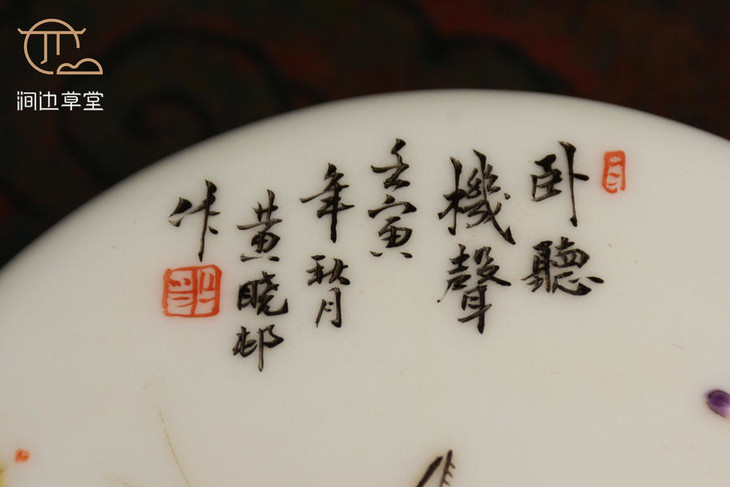 涧边草堂
卧聽
機聲
壬寅
年秋月
黄晓邨
作